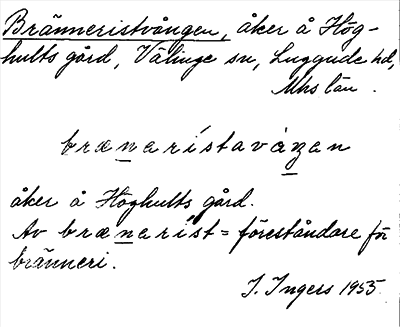 Bränneristvången, åker å Hög-
hults gård, Välinge sn, Luggude hd,
Mhs län.
brænarístavàŋan
åker å Höghults gård.
Av brænaríst = föreståndare för
bränneri.
I. Ingers 1955